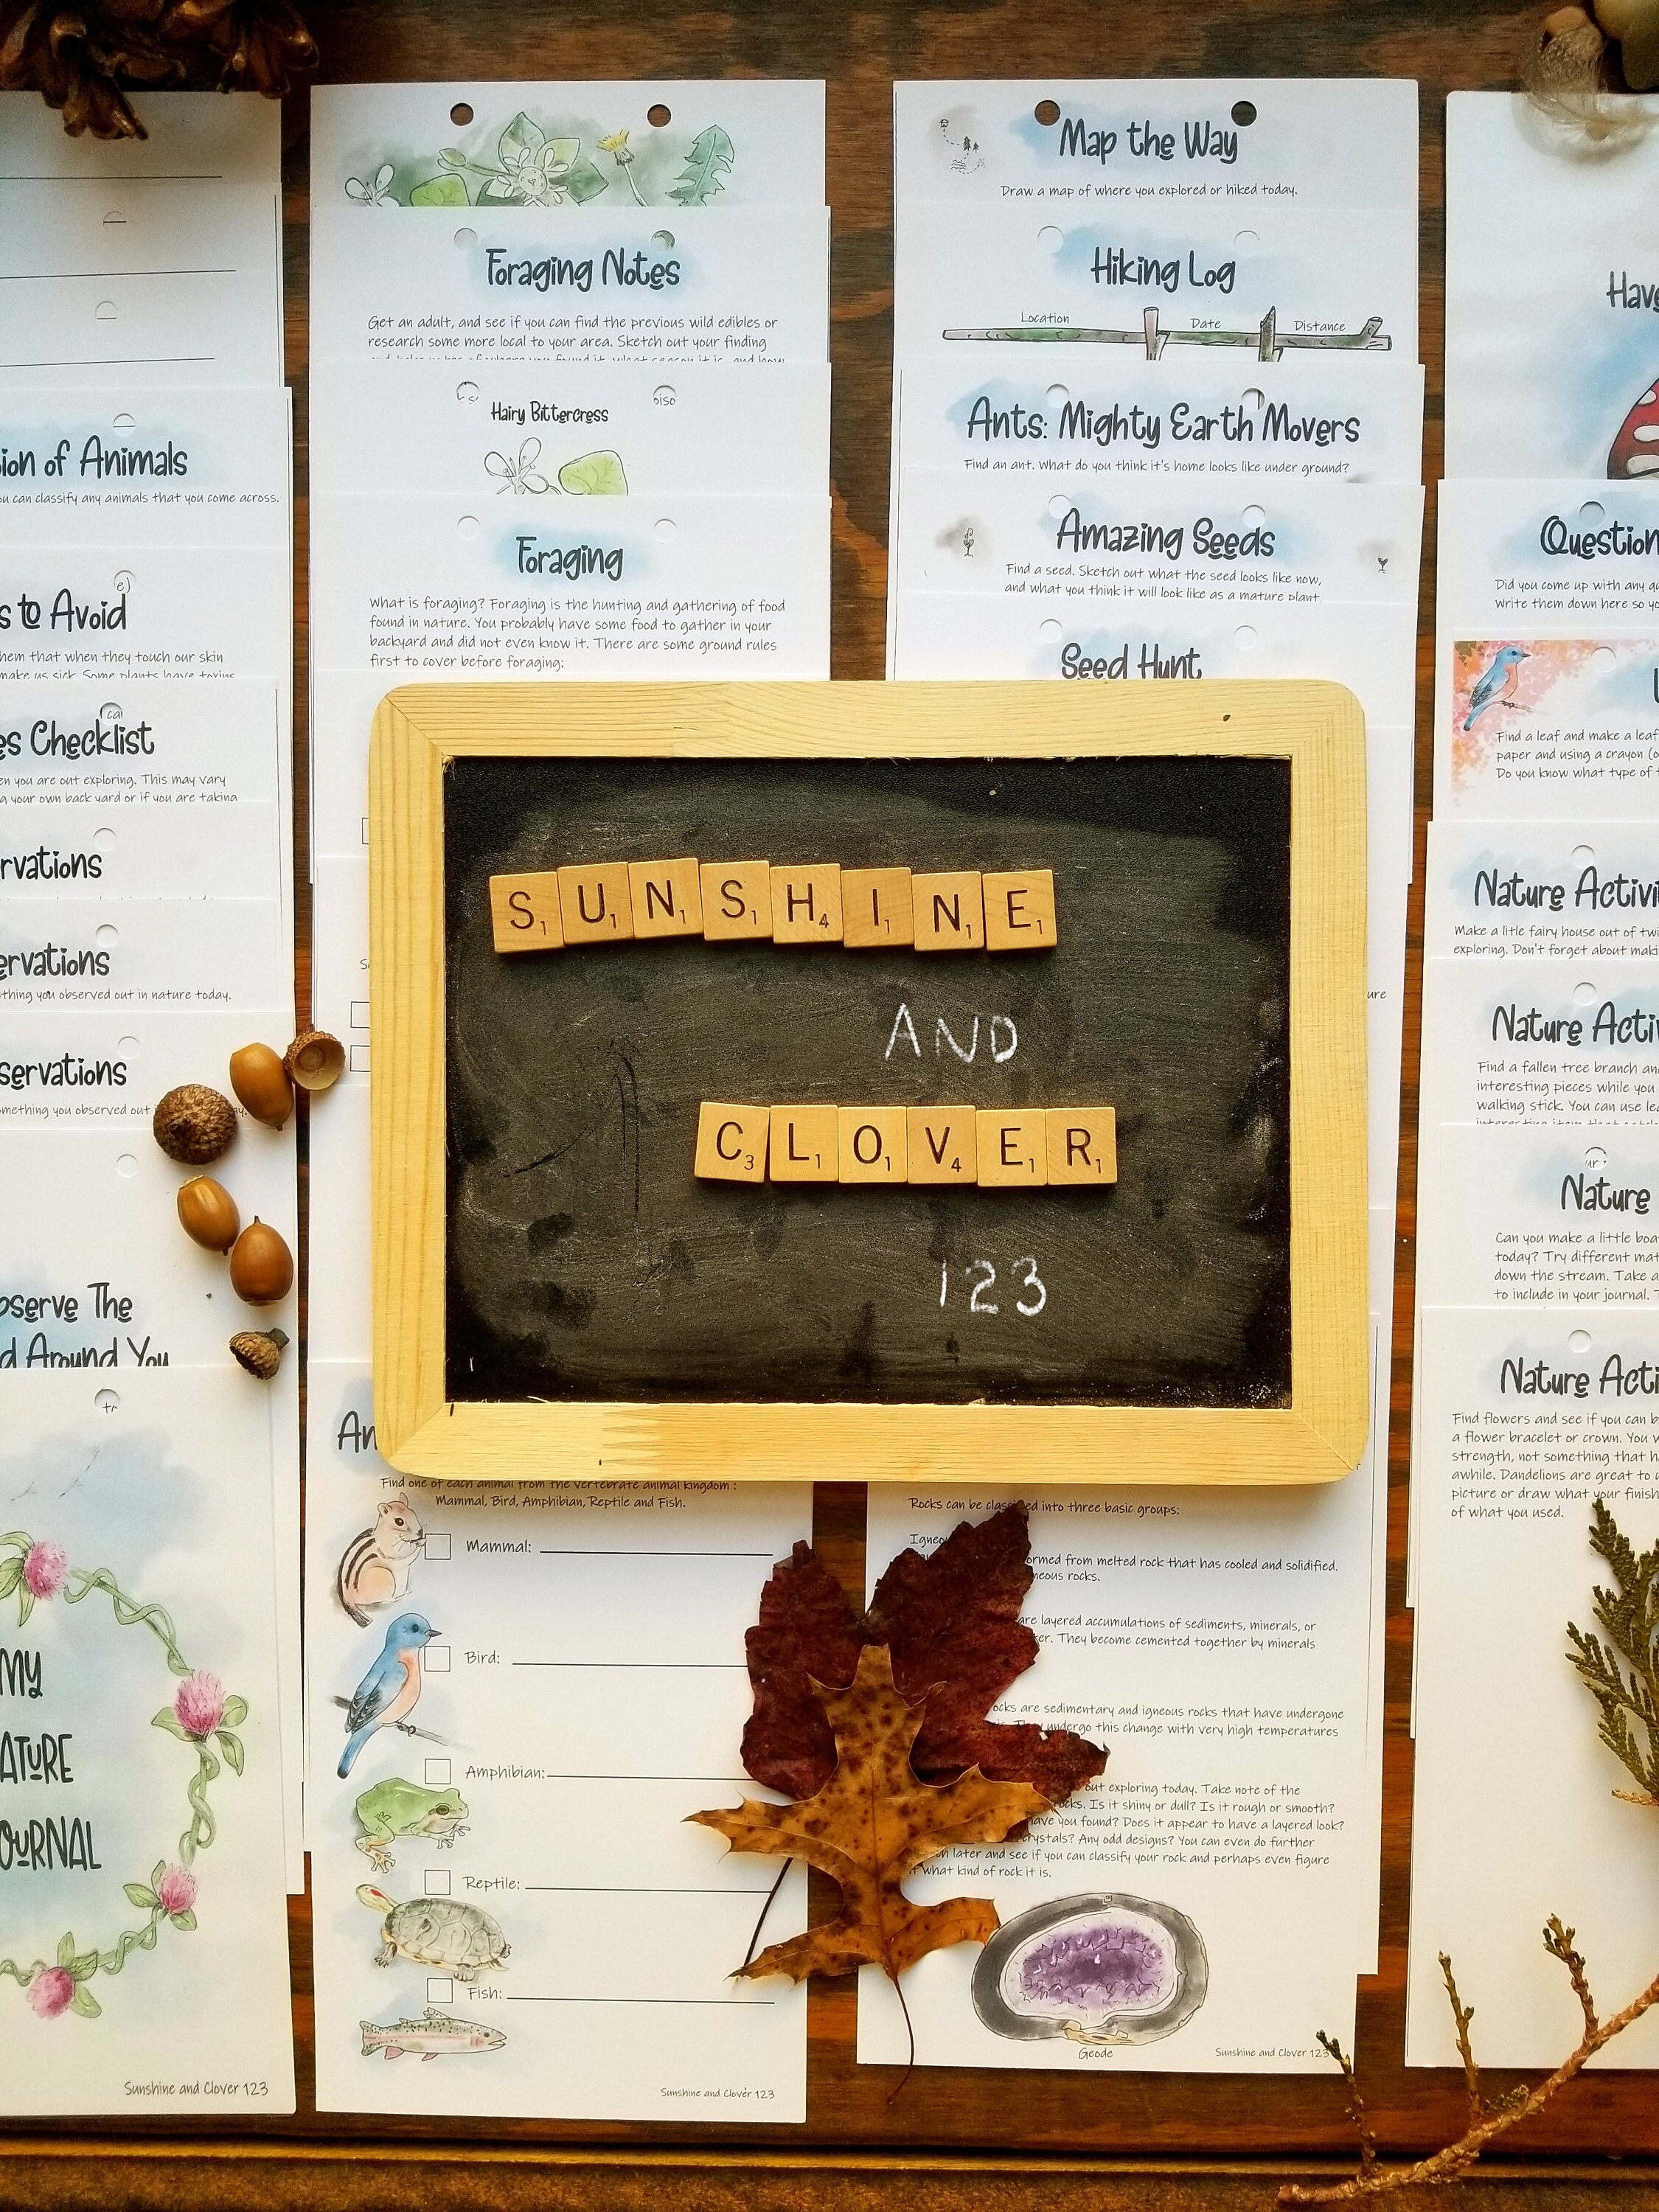 ion of Animals
ou can classify any animals that you come across.
s to Avoid
hem that when they touch our skin
make us sick. Some plants have toxins
es Checklist
en you are out exploring. This may vary
your own back yard or if you are taking
rvations
ervations
thing you observed out in nature today.
servations
omething you observed out
bserve The
d Around You
MY
ATURE
OURNAL
Sunshine and Clover 123
Foraging Notes
Get an adult, and see if you can find the previous wild edibles or
research some more local to your area. Sketch out your finding
Hairy Bittercress
Foraging
What is foraging? Foraging is the hunting and gathering of food
found in nature. You probably have some food to gather in your
backyard and did not even know it. There are some ground rules
first to cover before foraging:
Map the Way
Draw a map of where you explored or hiked today.
Hiking Log
Location Date Distance
Ants: Mighty Earth Movers
Find an ant. What do you think it's home looks like under ground?
Amazing Seeds
Find a seed. Sketch out what the seed looks like now,
and what you think it will look like as a mature plant.
Seed Hunt
SUNSHINE
AND
CLOVER
123
An
Find one of each animal from the vertebrate animal kingdom :
Mammal, Bird, Amphibian, Reptile and Fish.
Mammal:
Bird:
Amphibian:
Reptile:
Fish:
Sunshine and Clover 123
Rocks can be classified into three basic groups:
Igneou
ormed from melted rock that has cooled and solidified.
neous rocks.
are layered accumulations of sediments, minerals, or
ter. They become cemented together by minerals
ocks are sedimentary and igneous rocks that have undergone
They undergo this change with very high temperatures
out exploring today. Take note of the
ocks. Is it shiny or dull? Is it rough or smooth?
have you found? Does it appear to have a layered look?
crystals? Any odd designs? You can even do further
later and see if you can classify your rock and perhaps even figure
what kind of rock it is.
Geode
Sunshine and Clover 123
Have
Question
Did you come up with any qu
Write them down here so yo
Find a leaf and make a leaf
paper and using a crayon (o
Do you know what type of t
Nature Activi
Make a litle fairy house out of twi
exploring. Don't forget about maki
Nature Activ
Find a fallen tree branch an
interesting pieces while you
walking stick. You can use lea
Nature
Can you make a little boa
today? Try different mat
down the stream. Take a
to include in your journal.
Nature Acti
Find flowers and see if you can b
a flower bracelet or crown. You w
strength, not something that h
awhile. Dandelions are great to u
picture or draw what your finish
of what you used.